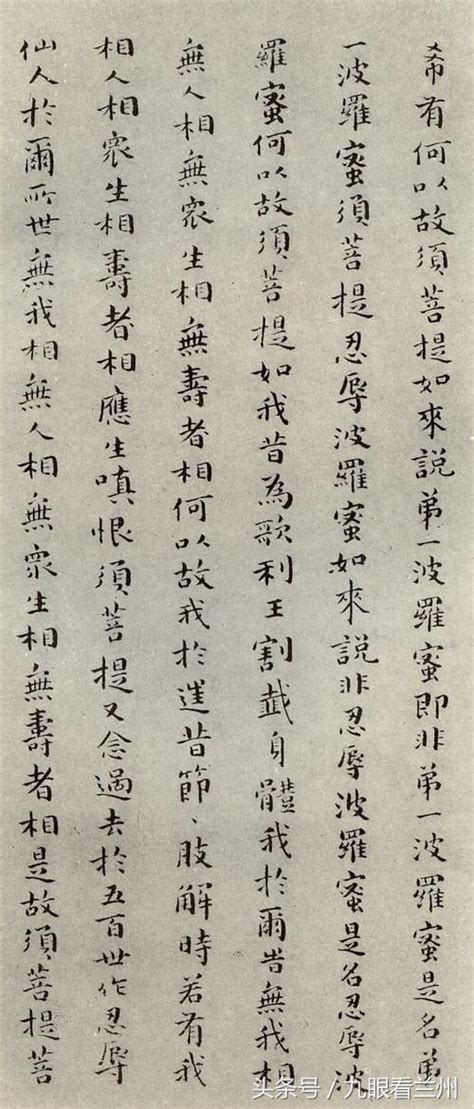 希有何以故須菩提如來說弟一波羅蜜即非弟一波羅蜜是名弟
一波羅蜜須菩提忍辱波羅蜜如來說非忍辱波羅蜜是名忍辱波
羅蜜何以故須菩提如我昔為歌利王割截身體我於爾時無我相
無人相無眾生相無壽者相何以故我於往昔節、肢解時若有我
相人相眾生相壽者相應生嗔恨須菩提又念過去於五百世作忍辱
仙人於爾所世無我相無人相無眾生相無壽者相是故須菩提菩
头条号/九眼看兰州